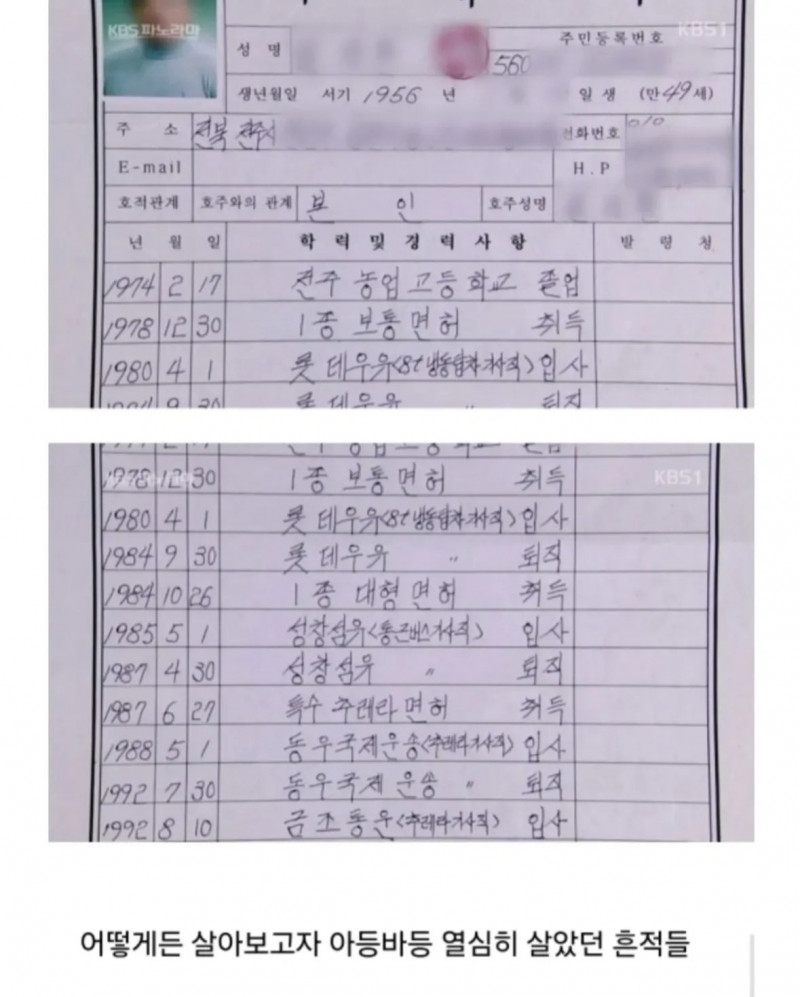 KBS 파노라마
KBS1
성 명
주민등록번호
560
생년월일 서기 1956 년 일 생 (만 49 세)
주 소 전북 전주시
전화번호 010
E-mail
H.P
호적관계 호주와의 관계 본 인 호주성명
년 월 일 학 력 및 경 력 사 항 발 령 청
1974 2 17 전주 농업 고등학교 졸업
1978 12 30 1종 보통면허 취득
1980 4 1 롯데우유(8t냉동탑차기사직) 입사
1984 9 30 롯데우유 〃 퇴직
KBS1
1978 12 30 1종 보통면허 취득
1980 4 1 롯데우유(8t냉동탑차기사직) 입사
1984 9 30 롯데우유 〃 퇴직
1984 10 26 1종 대형면허 취득
1985 5 1 성창섬유(통근버스기사직) 입사
1987 4 30 성창섬유 〃 퇴직
1987 6 27 특수 추레라면허 취득
1988 5 1 동우국제운송(추레라기사직) 입사
1992 7 30 동우국제운송 〃 퇴직
1992 8 10 금조통운(추레라기사직) 입사
어떻게든 살아보고자 아등바등 열심히 살았던 흔적들